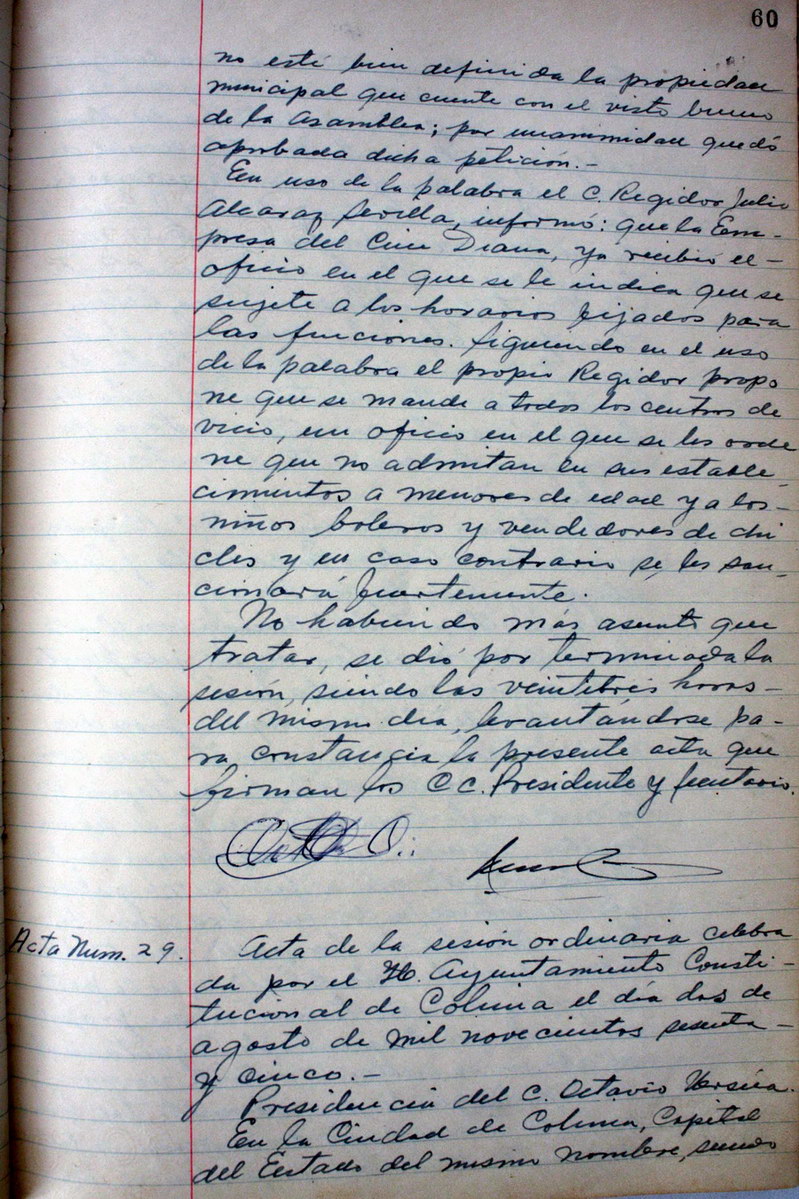 60
no esté bien definida la propiedad
municipal que cuente con el visto bueno
de la Asamblea; por unanimidad quedó
aprobada dicha petición.-
En uso de la palabra el C. Regidor Julio
Alcaraz Sevilla, informó: que la Em-
presa del Cine Diana, ya recibió el-
oficio en el que se le indica que se
sujete a los horarios fijados para
las funciones. Siguiendo en el uso
de la palabra el propio Regidor propo
ne que se mande a todos los centros de
vicio, un oficio en el que se les orde
ne que no admitan en sus estable-
cimientos a menores de edad y a los-
niños boleros y vendedores de chi
cles y en caso contrario se les san-
cionará fuertemente.
No habiendo más asunto que
tratar, se dió por terminada la
sesión, siendo las veintitrés horas-
del mismo día, levantándose pa-
ra constancia la presente acta que
firman los CC. Presidente y Secretario.
Acta Num. 29.
Acta de la sesión ordinaria celebra
da por el H. Ayuntamiento Consti-
tucional de Colima el día dos de
agosto de mil novecientos sesenta-
y cinco.-
Presidencia del C. Octavio
En la Ciudad de Colima, Capital
del Estado del mismo nombre, siendo